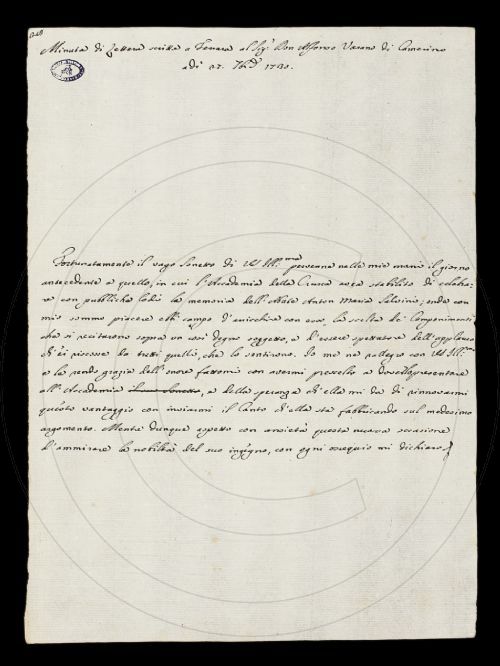 Minuta di Lettera scritta a Ferrara al Sig.r Don Alfonso Varano di Camerino
adì 27. 7bre 1730.
Fortunatamente il vago Sonetto di VS Ill.ma pervenne nelle mie mani il giorno
antecedente a quello, in cui l'Accademia della Crusca avea stabilito di celebra-
re con pubbliche lodi la memoria dell'Abate Anton Maria Salvini, onde con
mio sommo piacere ebbi campo d'arricchire con esso la scelta de' Componimenti
che si recitarono sopra un così degno soggetto, e d'essere spettatore dell'applauso
ch'ei riscosse da tutti quelli, che lo sentirono. Io me ne rallegro con VS Ill.ma
e le rendo grazie dell'onore fattomi con avermi prescelto a presentare
all'Accademia il suo Sonetto, e della speranza ch'ella mi dà di rinnovarmi
questo vantaggio con inviarmi il Canto ch'ella sta fabbricando sul medesimo
argomento. Mentre dunque aspetto con ansietà questa nuova occasione
d'ammirare la nobiltà del suo ingegno, con ogni ossequio mi dichiaro